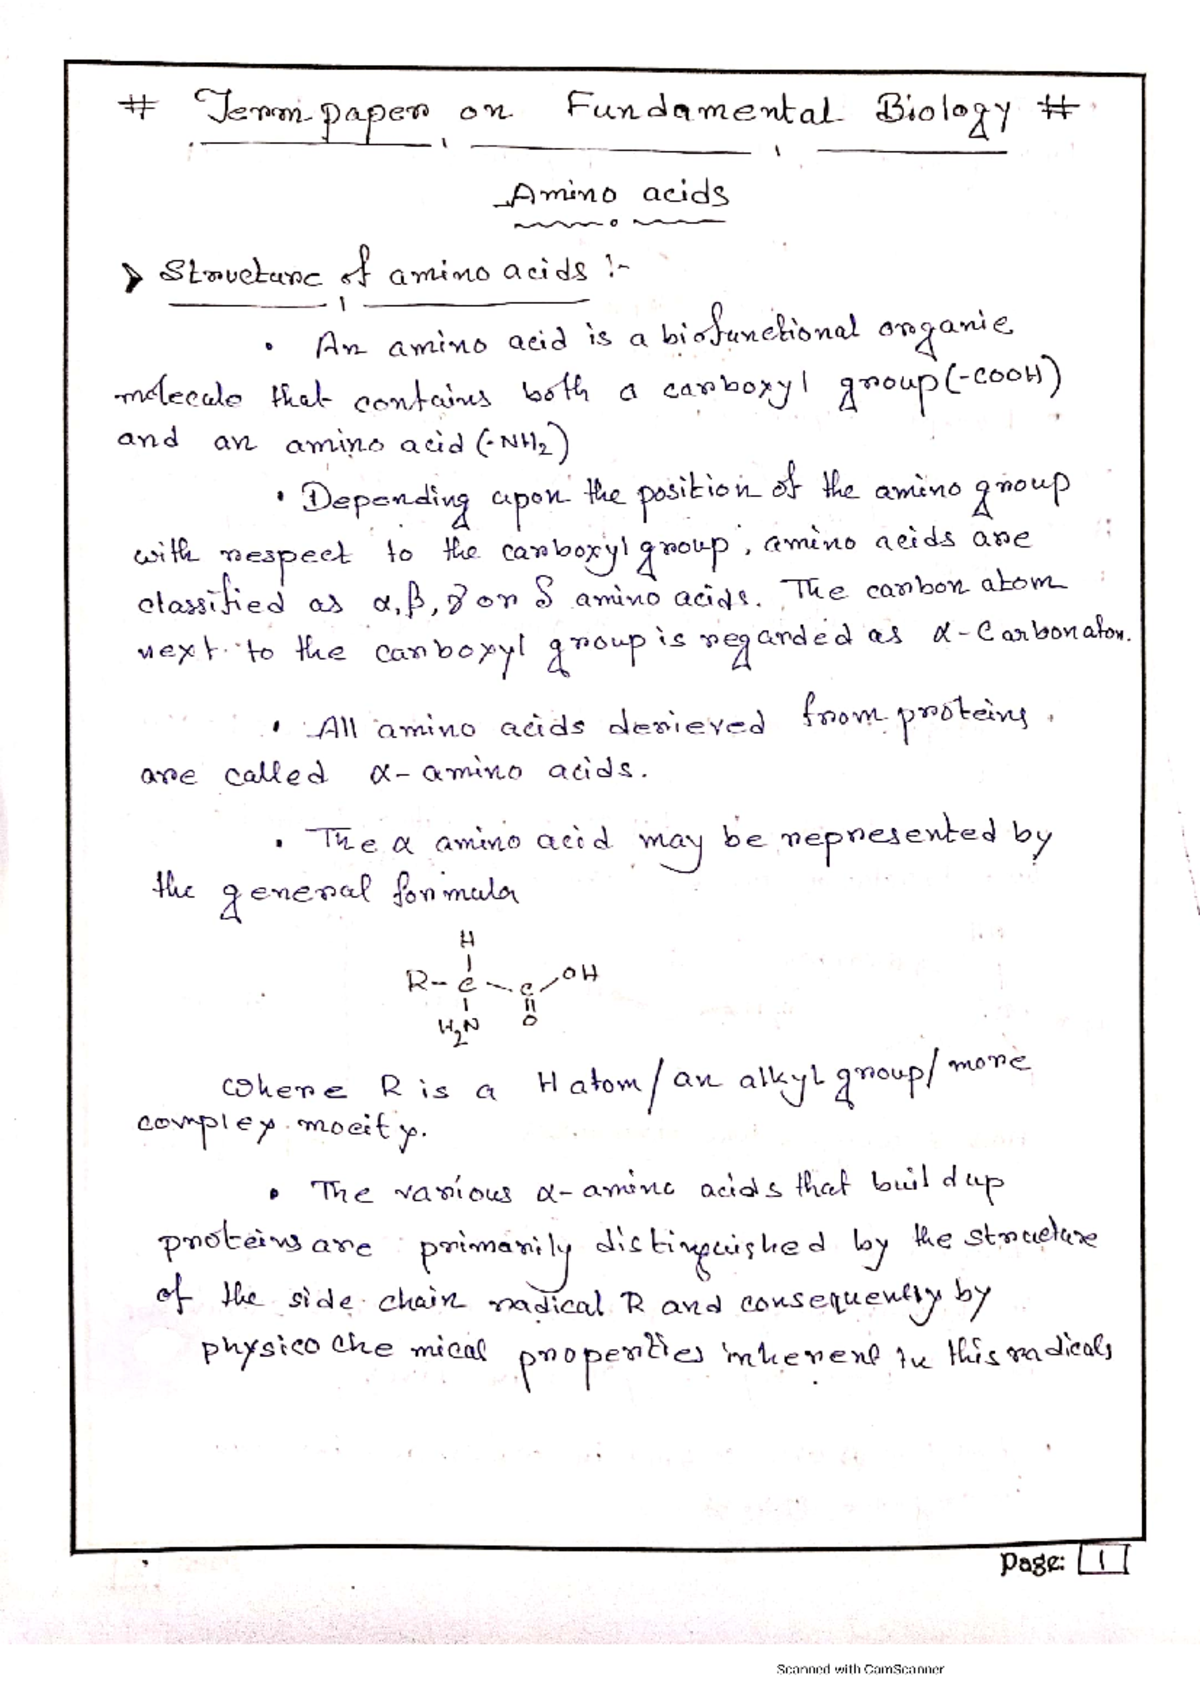 # Term paper on Fundamental Biology #
Amino acids
Structure of amino acids :-
• An amino acid is a biofunctional organic
molecule that contains both a carboxyl group (-COOH)
and an amino acid (-NH2)
• Depending upon the position of the amino group
with respect to the carboxyl group, amino acids are
classified as α, β, γ or δ amino acids. The carbon atom
next to the carboxyl group is regarded as α-Carbon atom.
• All amino acids derieved from proteins
are called α-amino acids.
• The α amino acid may be represented by
the general formula
H
R-C-C-OH
H2N O
Where R is a H atom/an alkyl group/more
complex mocity.
• The various α-amino acids that build up
proteins are primarily distinguished by the structure
of the side chain radical R and consequently by
physico chemical properties inherent in this radicals
Page: 1
Scanned with CamScanner